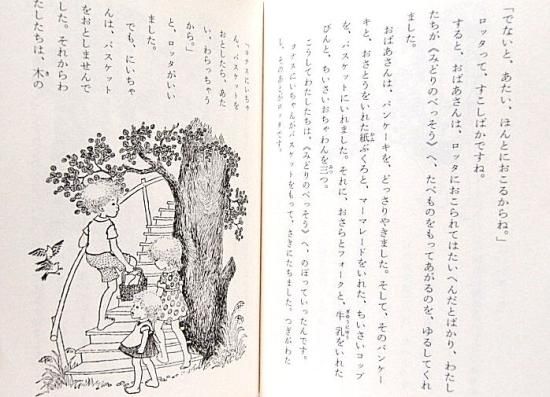 「でないと、あたい、ほんとにおこるからね。」
ロッタって、すこしばかですね。
すると、おばあさんは、ロッタにおこられてはたいへんだとばかり、わたし
たちが《みどりのべっそう》へ、たべものをもってあがるのを、ゆるしてくれ
ました。
おばあさんは、パンケーキを、どっさりやきました。そして、そのパンケー
キと、おさとうをいれた紙ぶくろと、マーマレードをいれた、ちいさいコップ
を、バスケットにいれました。それに、おさらとフォークと、牛乳をいれた
びんと、ちいさいおちゃわんを三つ。
こうしてわたしたちは、《みどりのべっそう》へ、のぼっていったんです。
ヨナスにいちゃんがバスケットをもって、さきにたちました。つぎがわた
し、そのあとがロッタです。
「ヨナスにいちゃ
ん、バスケットを
おとしたら、あた
い、わらっちゃう
から。」
と、ロッタがいい
ました。
でも、にいちゃ
んは、バスケット
をおとしませんで
した。それからわ
たしたちは、木の